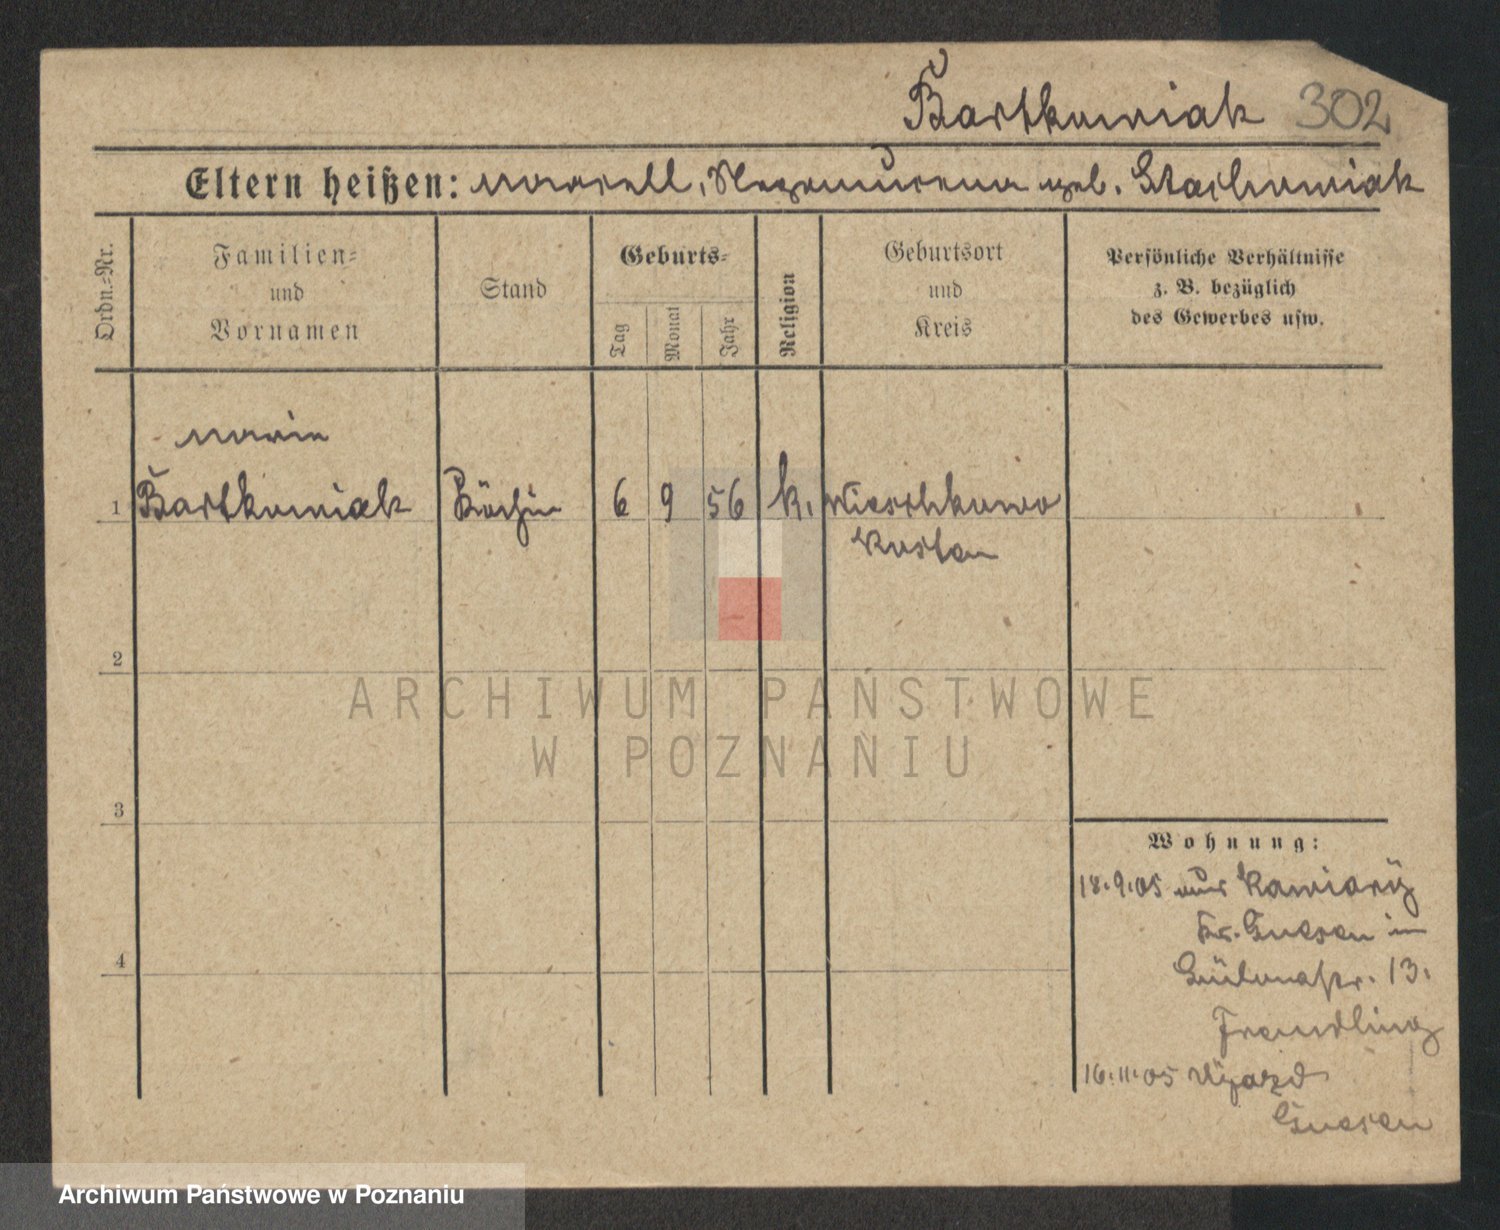 Bartkowiak 302
Eltern heißen: Marcell, Nepomucena geb. Stachowiak
Ordn.-Nr.
Familien-
und
Vornamen
Stand
Geburts-
Tag
Monat
Jahr
Religion
Geburtsort
und
Kreis
Persönliche Verhältnisse
z. B. bezüglich
des Gewerbes usw.
Marie
1 Bartkowiak Köchin 6 9 56 k. Wieschkowo
Kosten
2
3
4
ARCHIWUM PAŃSTWOWE
W POZNANIU
Wohnung:
18.9.05 aus
Kr. Gnesen in
13.
Fremdling
16.11.05 Ujazd
Gnesen
Archiwum Państwowe w Poznaniu